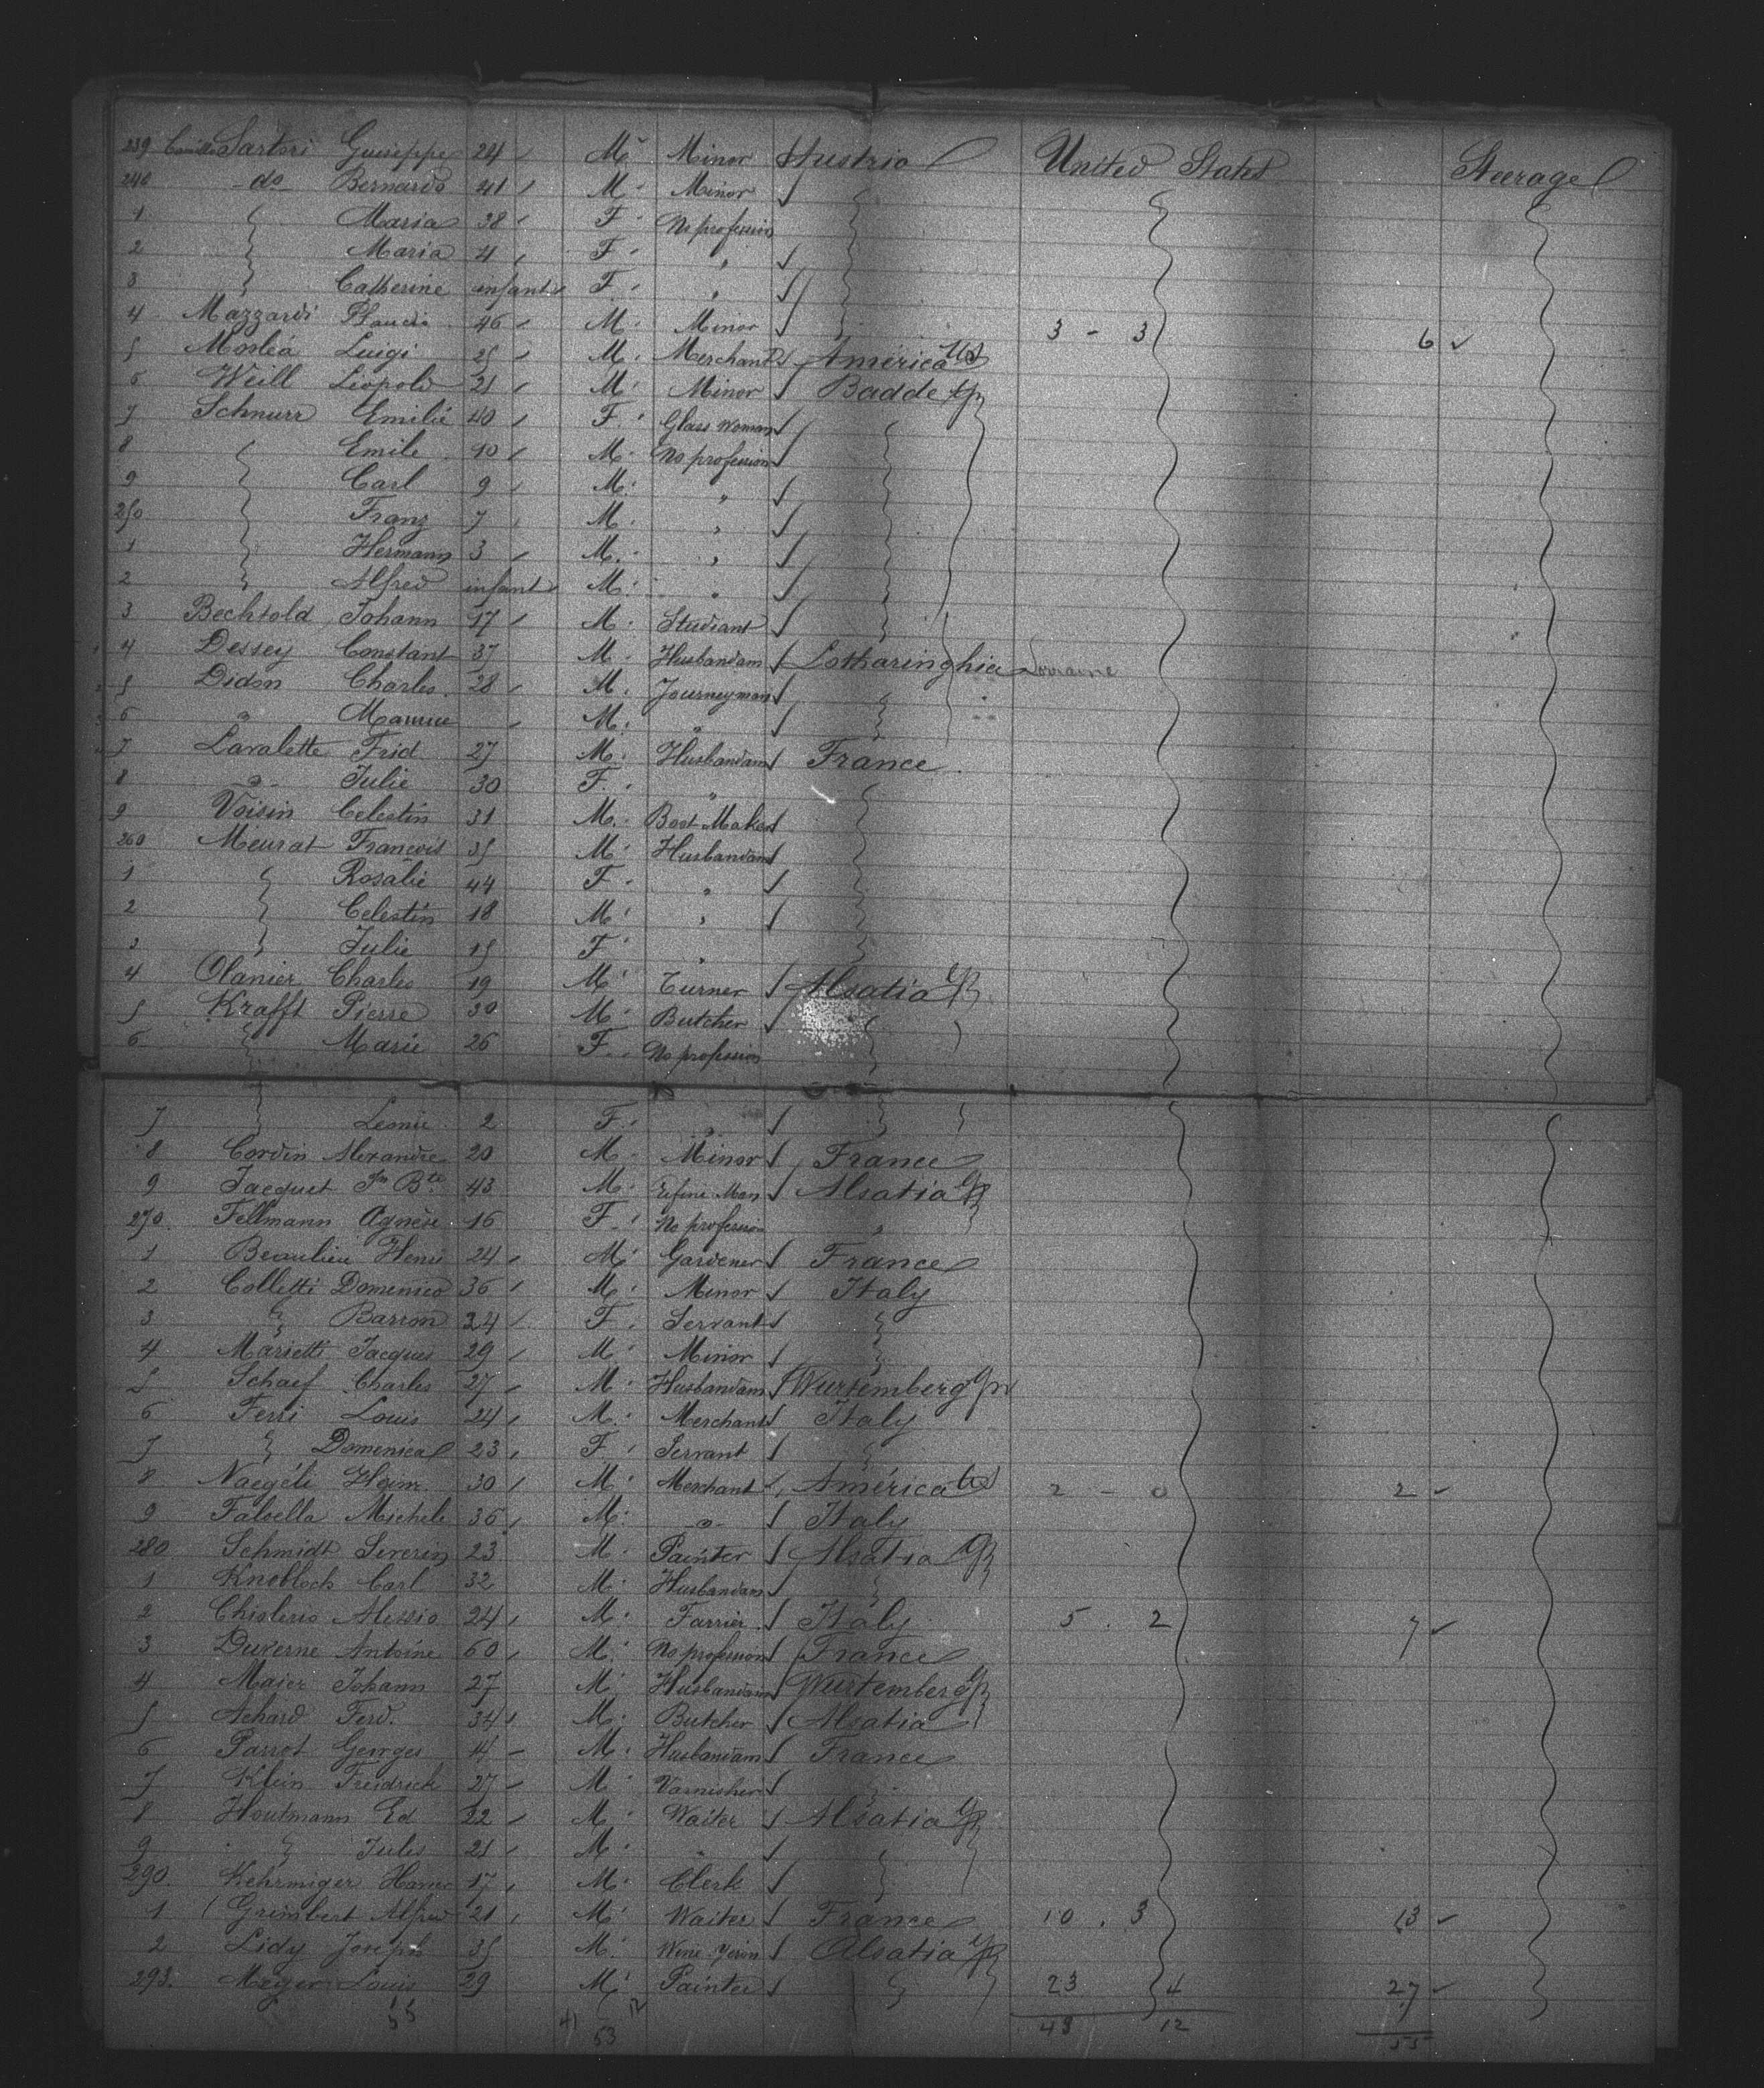 239 Sartori Guiseppe 24 M Minor Austria United States Steerage
240 do Bernardo 41 M Minor
1 Maria 38 F No profession
2 Maria 4 F "
3 Catherine infant F "
4 Mazzardi 46 M Minor 3 - 3 6
5 Luigi 25 M Merchant América US
6 Weill Léopold 21 M Minor Badde
7 Schnurr Emilie 40 F Glass Woman
8 Emile 10 M No profession
9 Carl 9 M "
250 Franz 7 M "
1 Hermann 3 M "
2 Alfred infant M "
3 Bechtold Johann 17 M Studiant
4 Dessey Constant 37 M Husbandam Lotharinghia Lorraine
5 Didon Charles 28 M Journeyman
6 " Maurice M "
7 Lavalette Frid 27 M Husbandam France
8 Julie 30 F "
9 Voisin Celestin 31 M Boot Maker
260 Meurat Francois 35 M Husbandam
1 Rosalie 44 F "
2 Celestin 18 M "
3 Julie 15 F "
4 Olanier Charles 19 M Turner Alsatia
5 Krafft Pierre 30 M Butcher
6 Marie 26 F No profession
7 Leonie 2 F "
8 Cordin Alexandre 20 M Minor France
9 Jacquet Jn Bte 43 M Man Alsatia
270 Fellmann Agnèse 16 F No profession "
1 Beaulieu Henri 24 M Gardener France
2 Colletti Domenico 36 M Minor Italy
3 Barron 24 F Servant
4 Marietti Jacques 29 M Minor
5 Schaef Charles 27 M Husbandam Wurtemberg
6 Ferri Louis 24 M Merchant Italy
7 Domenica 23 F Servant
8 Naegéli Heinr 30 M Merchant América US 2 - 0 2
9 Falsella Michele 36 M Italy
280 Schmidt Severin 23 M Painter Alsatia
1 Knobloch Carl 32 M Husbandam
2 Alessio 24 M Farrier Italy 5 . 2 7
3 Antoine 60 M No profession France
4 Maier Johann 27 M Husbandam Wurtemberg
5 Achard Ferd. 34 M Butcher Alsatia
6 Parrot Georges 14 M Husbandam France
7 Klein Freidrick 27 M Varnisher
8 Houtmann Ed 22 M Waiter Alsatia
9 Jules 21 M "
290 17 M Clerk
1 Grimbert Alfred 21 M Waiter France 10 . 3 13
2 Lidy Joseph 35 M Alsatia
293. Meyer Louis 29 M Painter 23 4 27
55 41 12 53 43 12 55